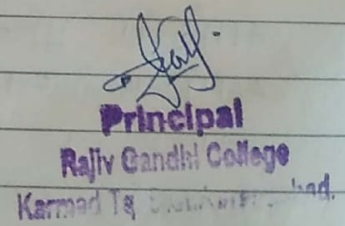 Principal
Rajiv Gandhi College
Karmad Tq